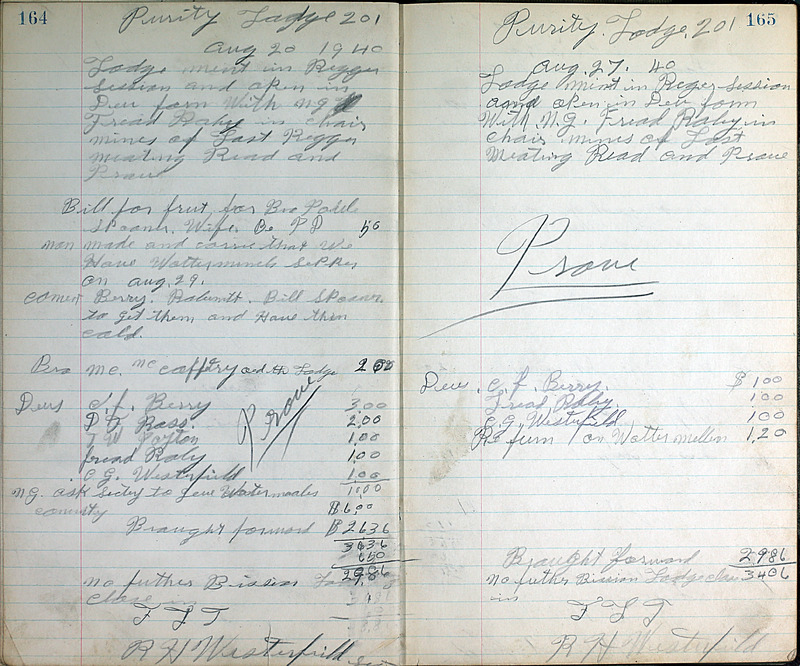 164
Purity Lodge 201
Aug 20 1940
Lodge ment in Regger
Session and open in
Deu form With N.G.
Fread Raby in chair
mines of Last Regger
meating Read and
Prove
Bill for frut for Bro
Spooner. Wife. Be P D 50
mon made and carrie that We
Have Watterminels Supper
on Aug. 29.
comet Berry. Bill Spooner
to get them and Have then
cald.
Bro Mc. Mccoffery and the Lodge 2 00
Prove
Deus C. F. Berry 3.00
D F Bass. 2.00
1.00
Fread Raby 1.00
C G. Westerfield 1.00
N.G. ask to Watermoales 10.00
comurty $6.00
Braught forward $2636
3636
650
2986
No futher Bission Lodge
close in
F L T
R H Westerfield Sec
165
Purity Lodge 201
Aug. 27. 40
Lodge ment in Reger Session
and open in Deu form
With N.G. Fread Raby in
chair mines of Last
Meating Read and Prove
Prove
Deus. C. F. Berry. $1.00
Fread Raby. 1.00
C. G. Westerfield 1.00
Re furn on Watter mellen 1.20
Braught forward 2986
No futher Bission Lodge close 3406
in
F L T
R H Westerfield